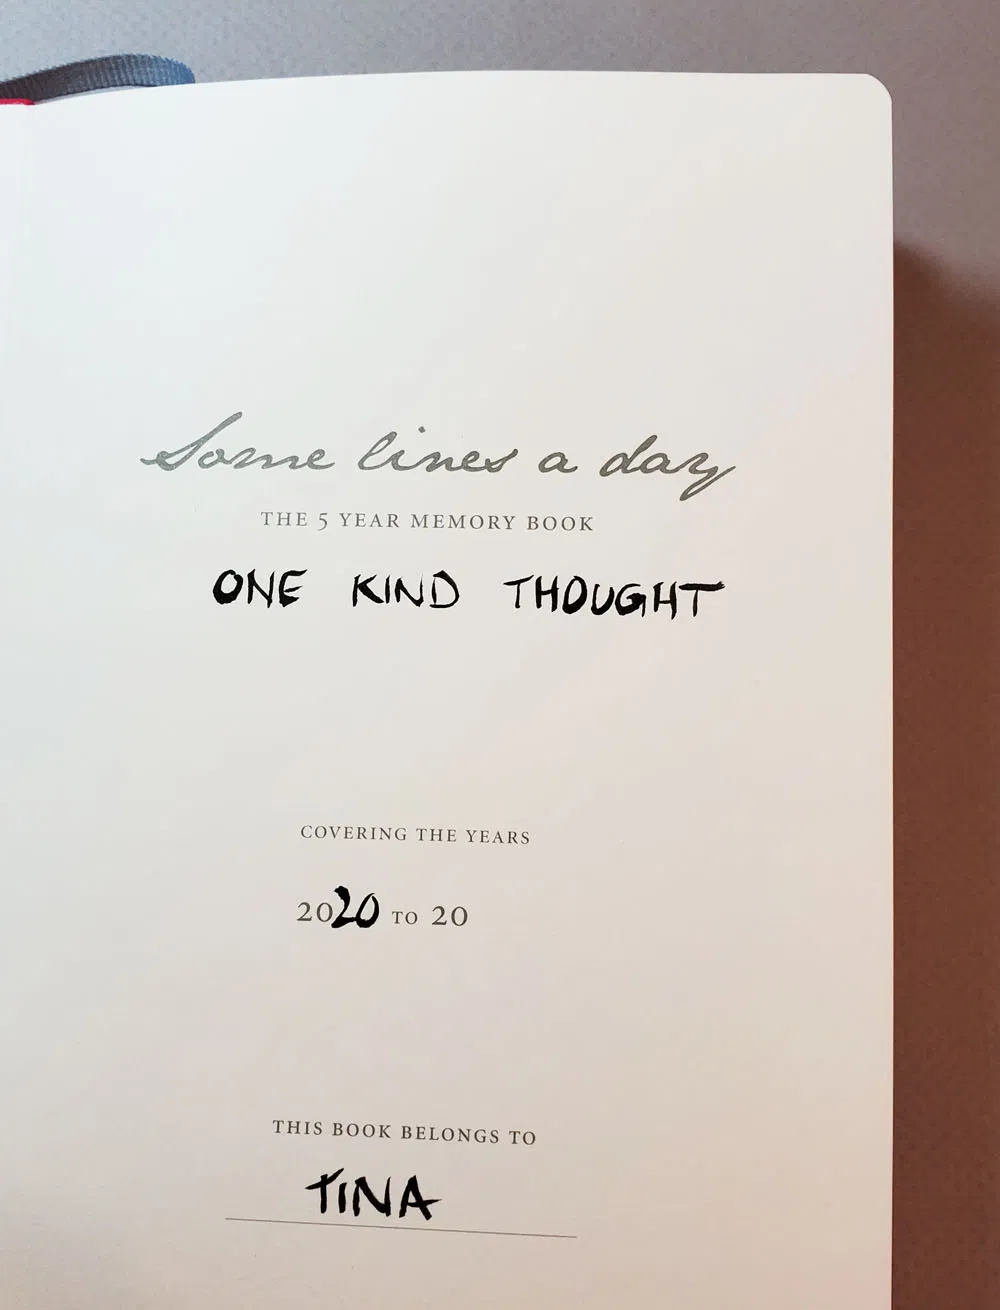 Some lines a day
THE 5 YEAR MEMORY BOOK
ONE KIND THOUGHT
COVERING THE YEARS
2020 TO 20
THIS BOOK BELONGS TO
TINA